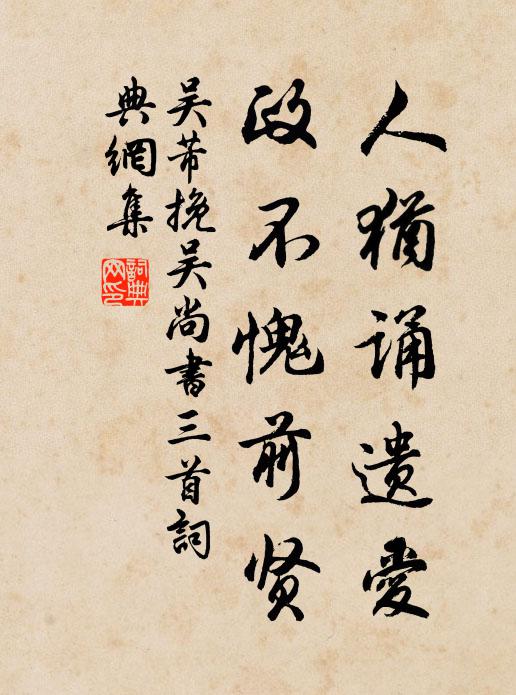 人犹诵遗爱
政不愧前贤
吴芾挽吴尚书三首詞
典網集
詞典
网印